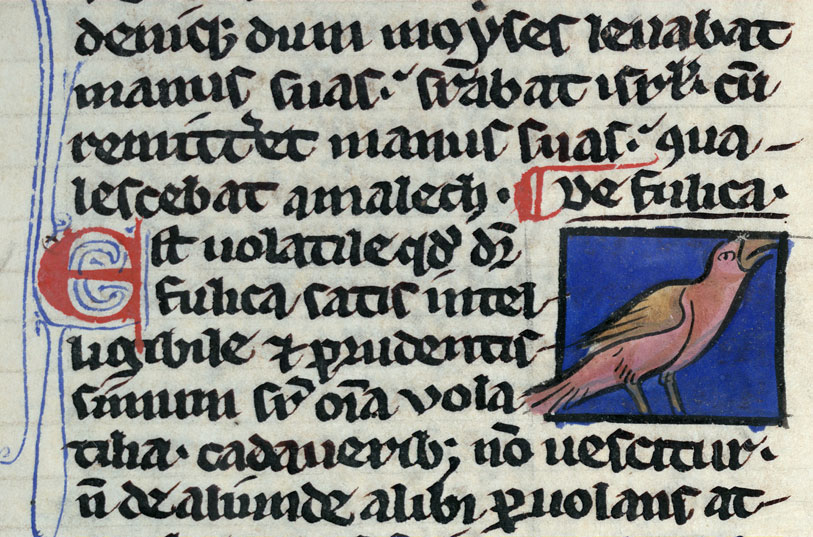 deniq; dum moyses leuabat
manus suas. sūabat isrl̄. cū
remitt̄et manus suas. qua-
lescebat amalech. ¶ De fulica.
Est uolatile qd̄ dr̄
fulica satis intel-
ligibile ⁊ prudentis-
simum sr̄ oīa vola
tilia. cadauerib; nō uescitur.
n̄ de aliunde alibi ꝑuolans at-